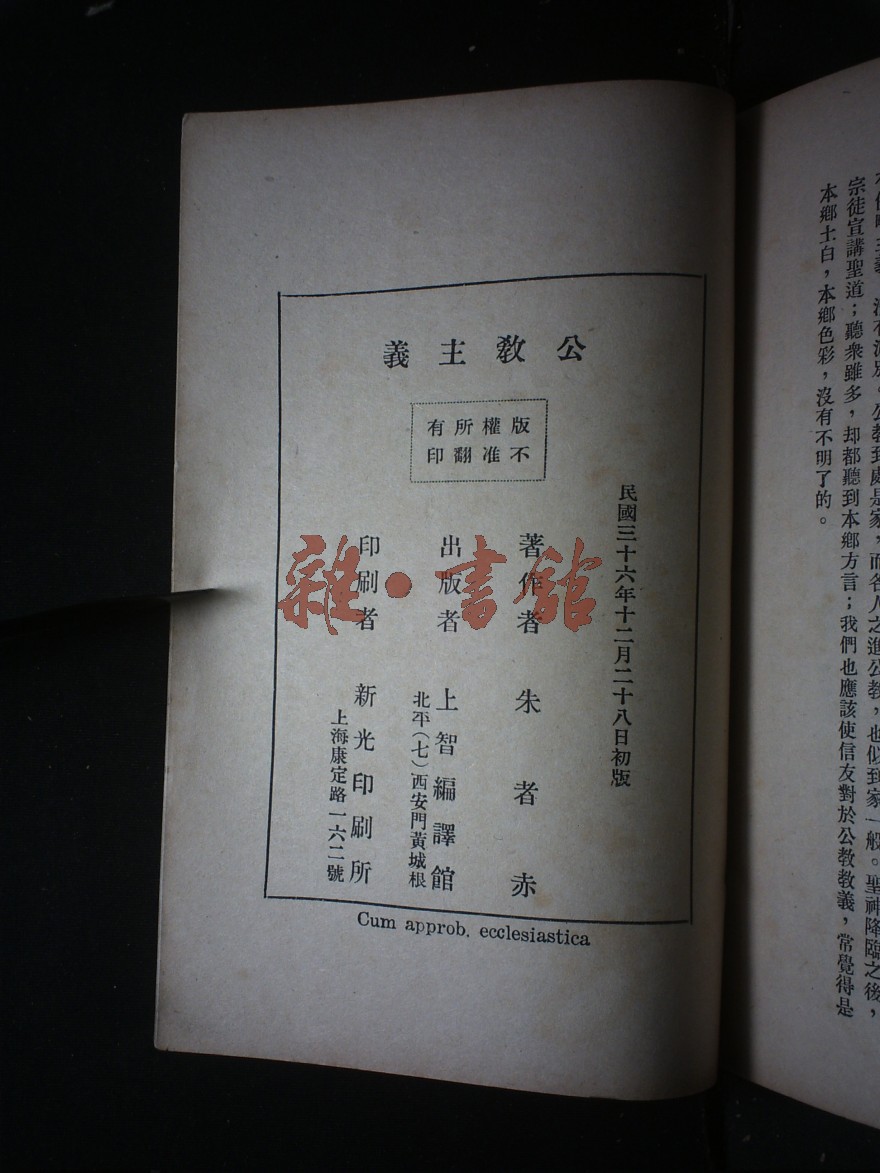 宗徒宣講聖道；聽衆雖多，却都聽到本鄉方言；我們也應該使信友對於公教教義，常覺得是
本鄉土白，本鄉色彩，沒有不明了的。
公教主義
版權所有
不准翻印
民國三十六年十二月二十八日初版
著作者 朱者赤
出版者 上智編譯館
北平（七）西安門黃城根
印刷者 新光印刷所
上海康定路一六二號
Cum approb. ecclesiastica
雜·書館